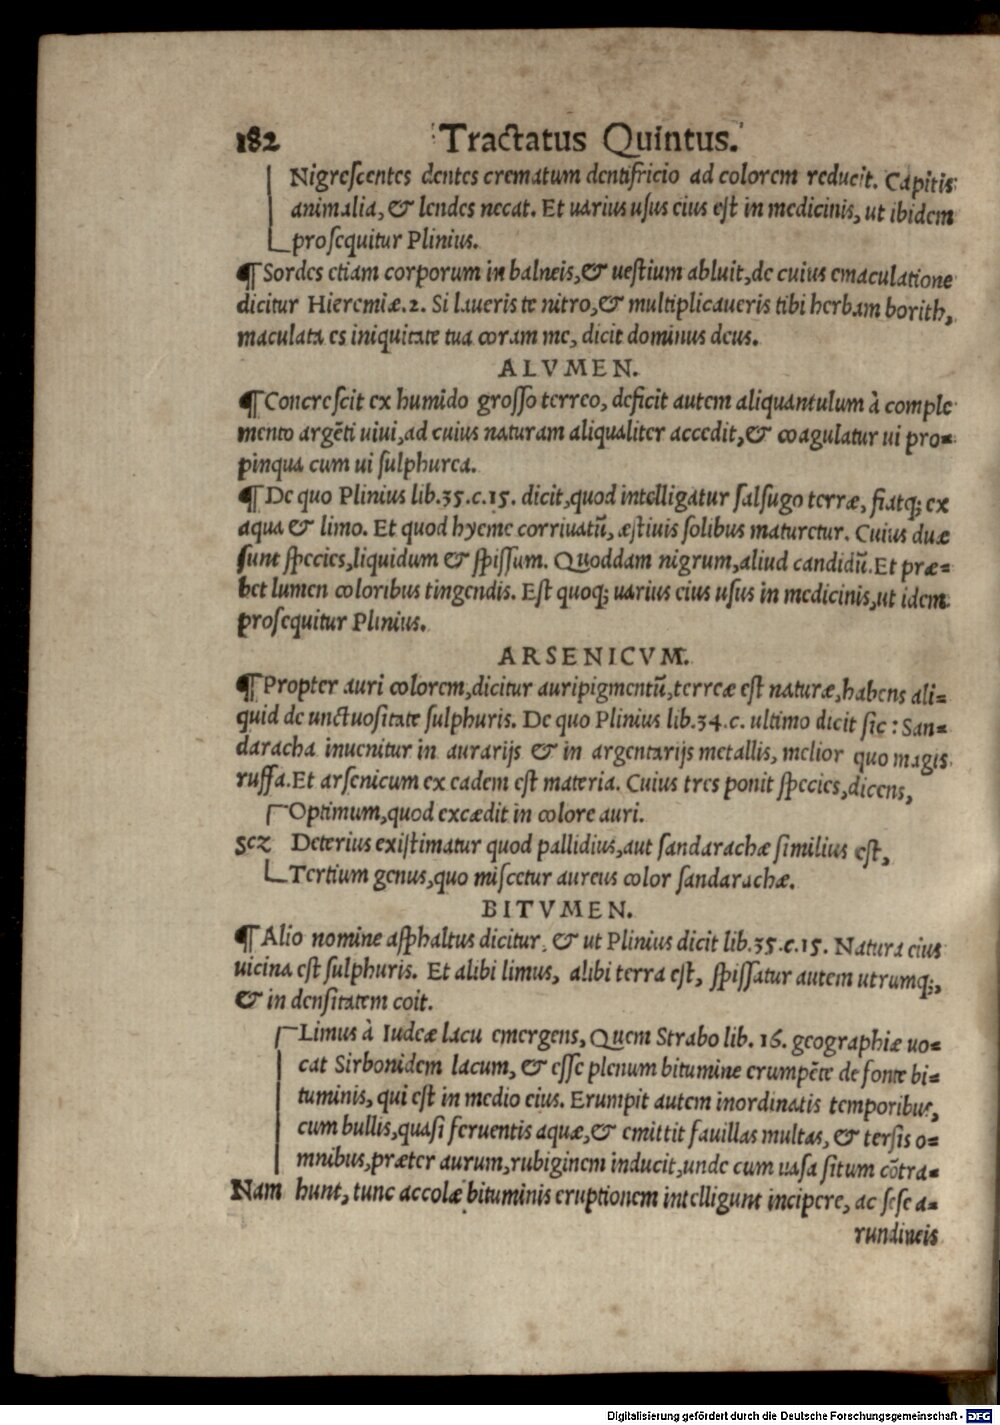 182 Tractatus Quintus.
Nigrescentes dentes crematum dentifricio ad colorem reducit. Capitis
animalia, & lendes necat. Et uarius usus eius est in medicinis, ut ibidem
prosequitur Plinius.
¶ Sordes etiam corporum in balneis, & uestium abluit, de cuius emaculatione
dicitur Hieremiæ. 2. Si laueris te nitro, & multiplicaueris tibi herbam borith,
maculata es iniquitate tua coram me, dicit dominus deus.
ALVMEN.
¶ Concrescit ex humido grosso terreo, deficit autem aliquantulum à comple
mento argẽti uiui, ad cuius naturam aliqualiter accedit, & coagulatur ui pro=
pinqua cum ui sulphurea.
¶ De quo Plinius lib. 35. c. 15. dicit, quod intelligatur salsugo terræ, fiatq; ex
aqua & limo. Et quod hyeme corriuatũ, æstiuis solibus maturetur. Cuius duæ
sunt species, liquidum & spissum. Quoddam nigrum, aliud candidũ. Et præ=
bet lumen coloribus tingendis. Est quoq; uarius eius usus in medicinis, ut idem
prosequitur Plinius.
ARSENICVM.
¶ Propter auri colorem, dicitur auripigmentũ, terreæ est naturæ, habens ali=
quid de unctuositate sulphuris. De quo Plinius lib. 34. c. ultimo dicit sic : San=
daracha inuenitur in aurarijs & in argentarijs metallis, melior quo magis
ruffa. Et arsenicum ex eadem est materia. Cuius tres ponit species, dicens,
Optimum, quod excædit in colore auri.
scz Deterius existimatur quod pallidius, aut sandarachæ similius est,
Tertium genus, quo miscetur aureus color sandarachæ.
BITVMEN.
¶ Alio nomine asphaltus dicitur, & ut Plinius dicit lib. 35. c. 15. Natura eius
uicina est sulphuris. Et alibi limus, alibi terra est, spissatur autem utrumq;,
& in densitatem coit.
Limus à Iudeæ lacu emergens, Quem Strabo lib. 16. geographiæ uo=
cat Sirbonidem lacum, & esse plenum bitumine erumpẽte de fonte bi=
tuminis, qui est in medio eius. Erumpit autem inordinatis temporibus,
cum bullis, quasi feruentis aquæ, & emittit fauillas multas, & tersis o=
mnibus, præter aurum, rubiginem inducit, unde cum uasa situm cõtra=
Nam hunt, tunc accolæ bituminis eruptionem intelligunt incipere, ac sese a=
rundineis
Digitalisierung gefördert durch die Deutsche Forschungsgemeinschaft - DFG